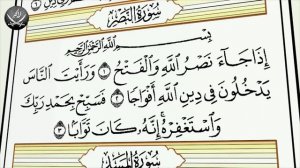 سُورَةُ النَّصْرِ
بِسْمِ اللَّهِ الرَّحْمَٰنِ الرَّحِيمِ
إِذَا جَآءَ نَصْرُ اللَّهِ وَالْفَتْحُ ١ وَرَأَيْتَ النَّاسَ
يَدْخُلُونَ فِي دِينِ اللَّهِ أَفْوَاجًا ٢ فَسَبِّحْ بِحَمْدِ رَبِّكَ
وَاسْتَغْفِرْهُ ۚ إِنَّهُۥ كَانَ تَوَّابًۢا ٣
سُورَةُ الْمَسَدِ